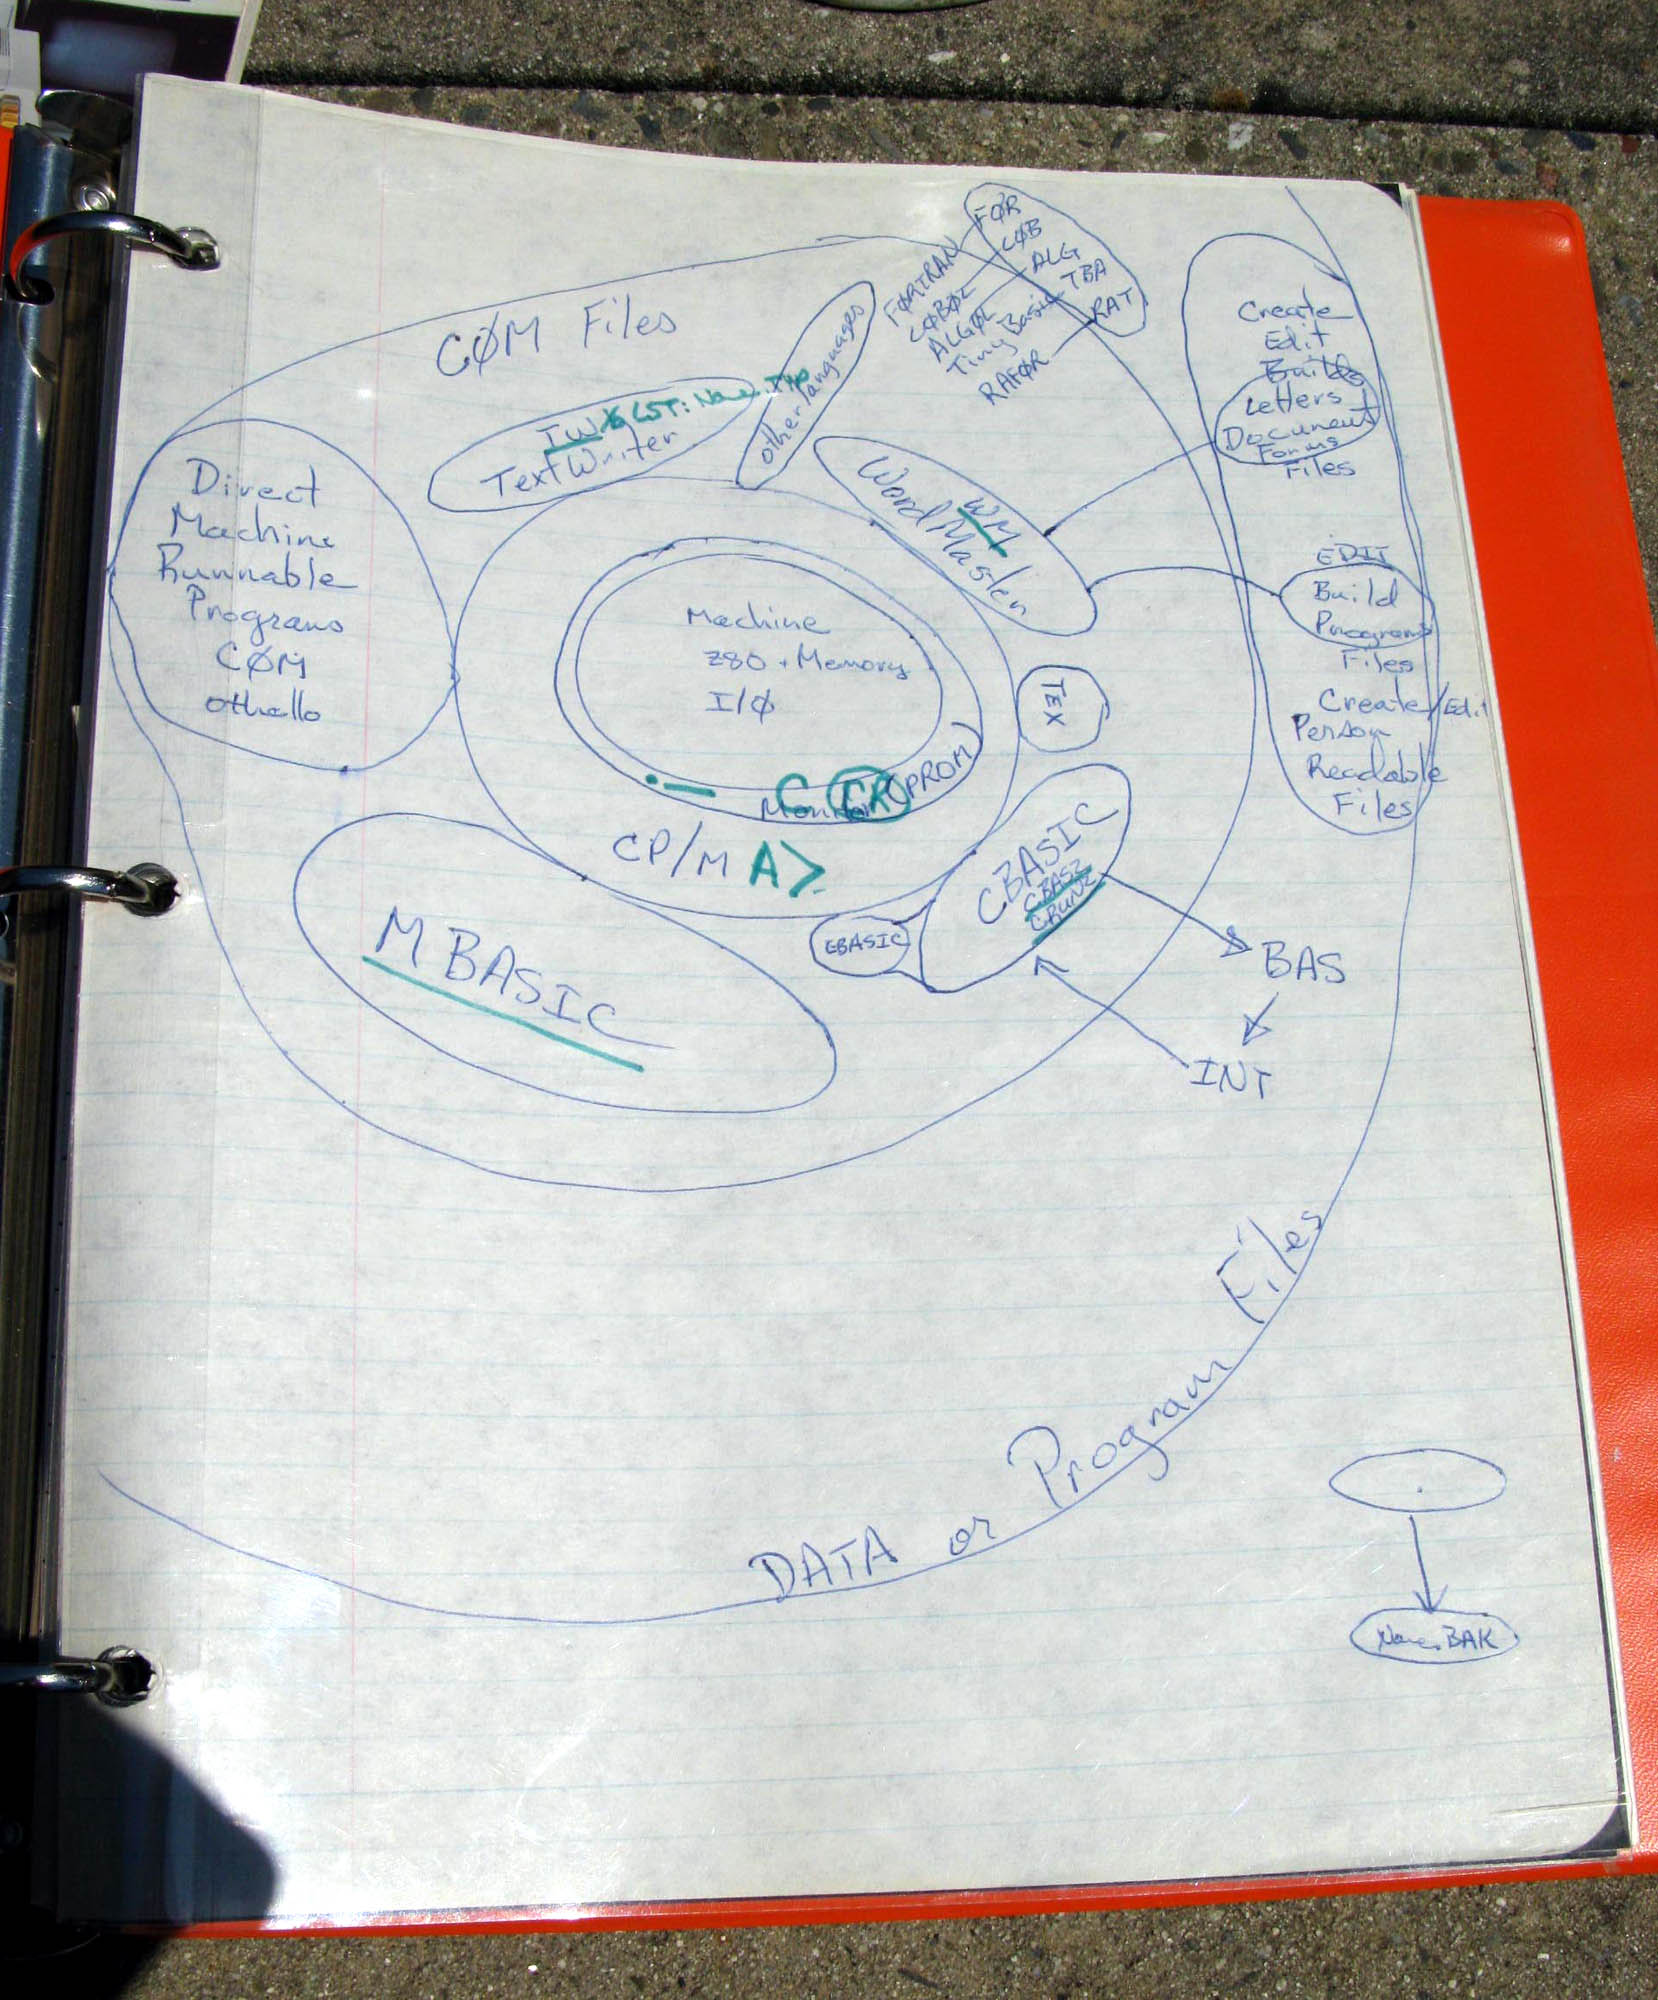 FØR
CØB
ALG
TBA
RAT
FØRTRAN
CØBØL
ALGØL
Tiny Basic
RAFØR
CØM Files
other languages
LST: Name.Typ
Text Writer
Create
Edit
Builds
Letters
Document
Forms
Files
WM
WordMaster
Direct
Machine
Runnable
Programs
CØM
othello
EDIT
Build
Programs
Files
Create/Edit
Person
Readable
Files
Machine
Z80 + Memory
I/Ø
TEX
. — C CR
Monitor (PROM)
CP/M A>
CBASIC
CBAS2
CRUN2
EBASIC
MBASIC
BAS
INT
DATA or Program Files
Name.BAK